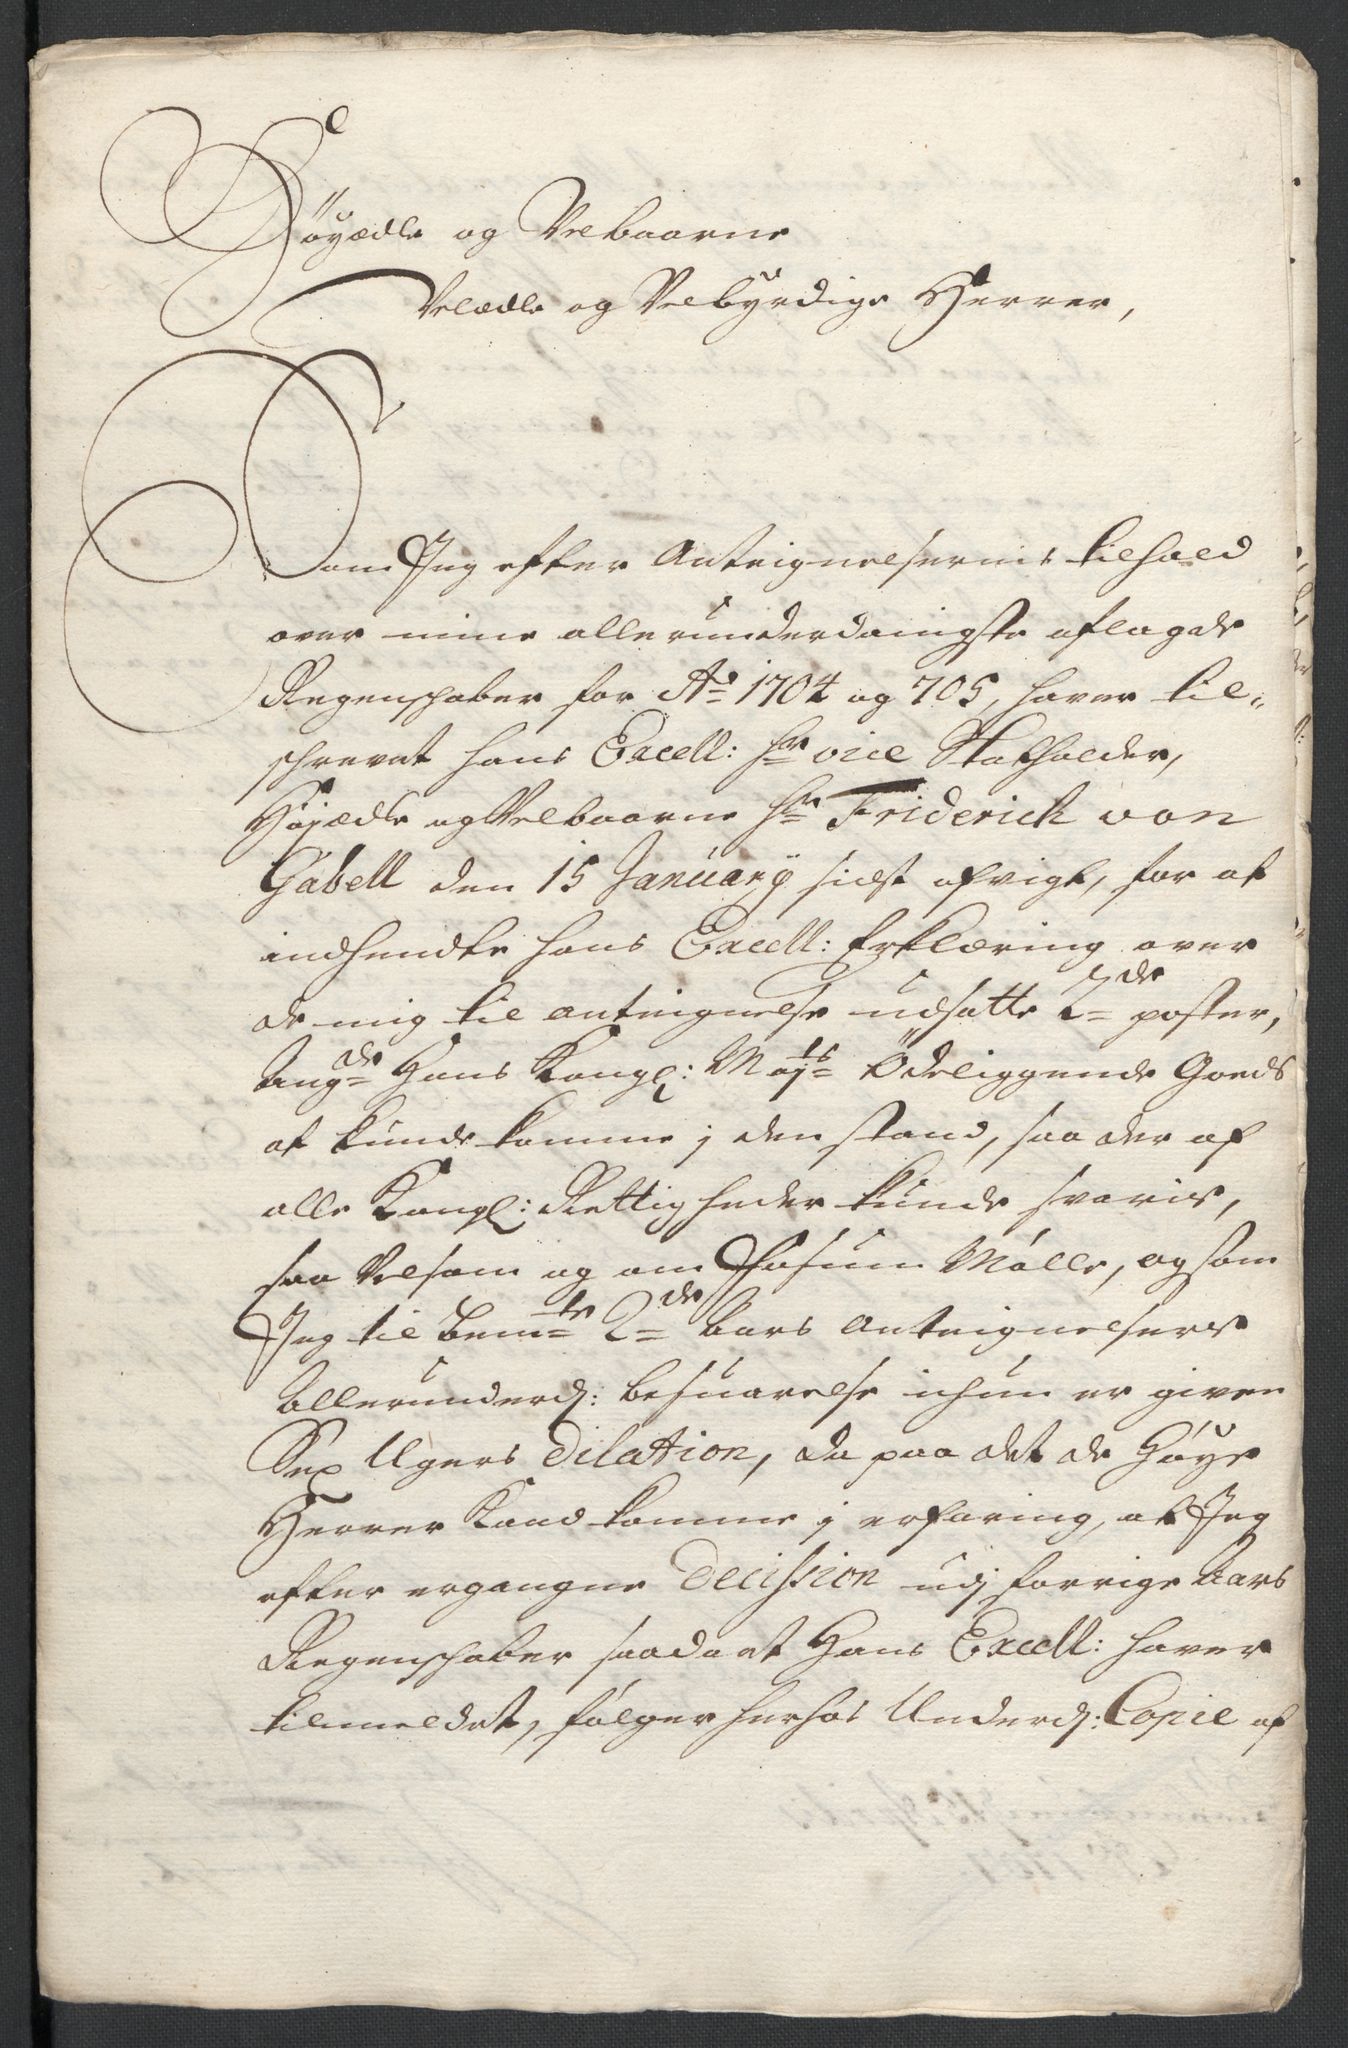 Høyædle og Velbaarne
Velædle og Velbyrdige Herrer,
Som Jeg efter Anteignelsernis tilhold
over mine allerunderdanigste aflagde
Regenskaber for Ao 1704 og 705, haver til=
schrevet hans Excell: hr vice Statholder,
Højædle og Velbaarne hr Friderich von
Gabell den 15 January sidst afvigt, for at
indhendte hans Excell: Erklæring over
de mig til anteignelse udsatte 2de poster,
Angde Hans Kongl: Mayts Ødeliggende Goeds
at kunde komme j den stand, saa der af
alle Kongl: Rettigheder kunde svaris,
saa Velsom og om Fossum Mølle, og som
Jeg til bemte 2de Aars Anteignelsers
Allerunderd: besuarelse ichun er given
Sex Ugers Dilation, da paa det de Høye
Herrer Kand komme j erfaring, at Jeg
efter ergangne Decission udj forrige Aars
Regenskaber saadant Hans Excell: haver
tilmeldet, følger herhos Underd: Copie af